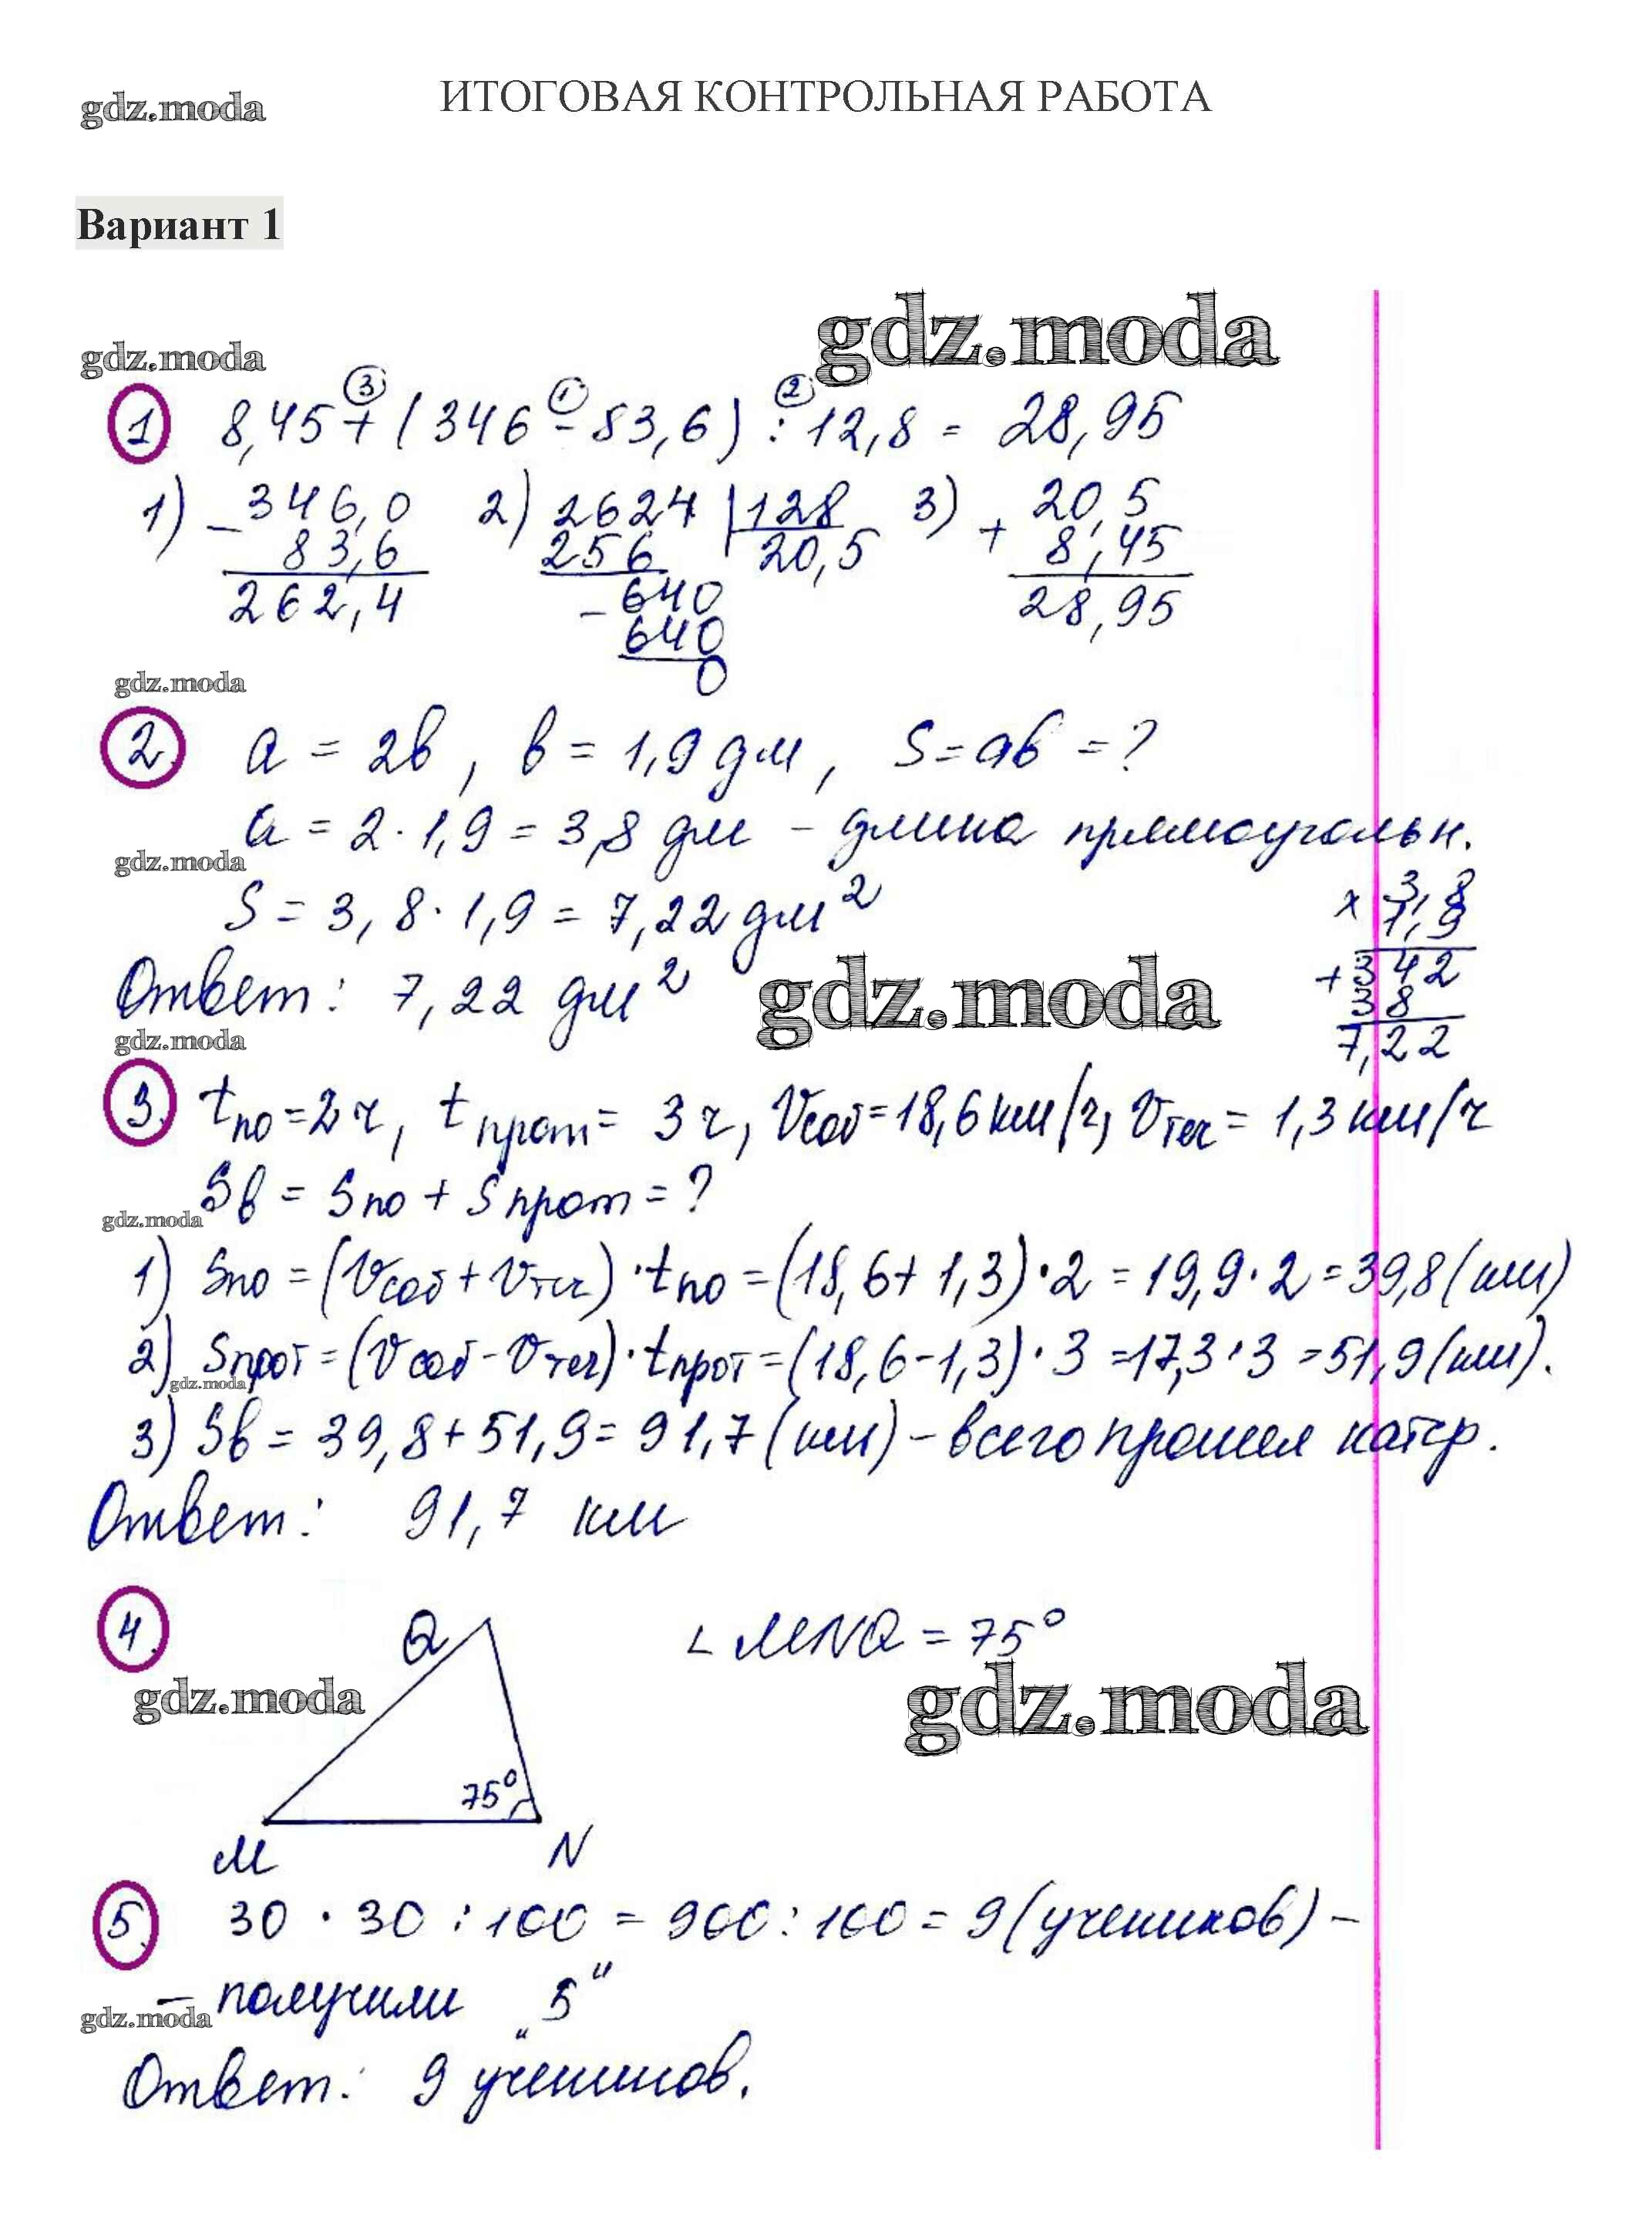 gdz.moda
ИТОГОВАЯ КОНТРОЛЬНАЯ РАБОТА
Вариант 1
gdz.moda
gdz.moda
③ ① ②
1 8,45 + (346 - 83,6) : 12,8 = 28,95
1) - 346,0 2) 2624 | 128 3) + 20,5
83,6 256 20,5 8,45
262,4 - 640 28,95
640
0
gdz.moda
2. a = 2b, b = 1,9 дм, S = ab = ?
a = 2 · 1,9 = 3,8 дм - длина прямоугольн.
gdz.moda
S = 3,8 · 1,9 = 7,22 дм²
x 3,8
1,9
+ 342
38
7,22
Ответ: 7,22 дм²
gdz.moda
gdz.moda
3. tпо = 2 ч, tпрот = 3 ч, Vсоб = 18,6 км/ч, Vтеч = 1,3 км/ч
Sв = Sпо + Sпрот = ?
gdz.moda
1) Sпо = (Vсоб + Vтеч) · tпо = (18,6 + 1,3) · 2 = 19,9 · 2 = 39,8 (км)
2) Sпрот = (Vсоб - Vтеч) · tпрот = (18,6 - 1,3) · 3 = 17,3 · 3 = 51,9 (км).
gdz.moda
3) Sв = 39,8 + 51,9 = 91,7 (км) - всего прошел катер.
Ответ: 91,7 км
4. Q ∠ MNQ = 75°
gdz.moda
gdz.moda
75°
M N
5. 30 · 30 : 100 = 900 : 100 = 9 (учеников) -
- получили „5"
gdz.moda
Ответ: 9 учеников.